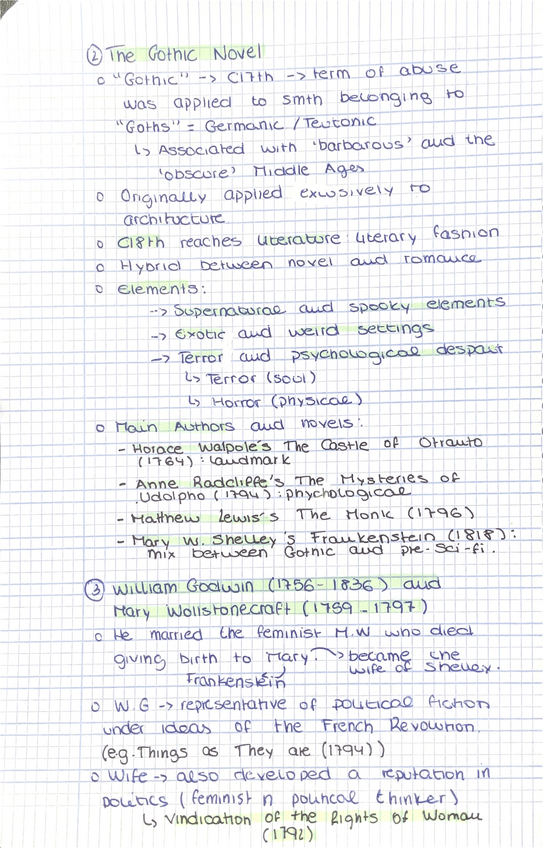 ② The Gothic Novel
o "Gothic" -> C17th -> term of abuse
was applied to smth belonging to
"Goths" = Germanic / Teutonic
↳ Associated with 'barbarous' and the
'obscure' Middle Ages
o Originally applied exclusively to
architecture
o C18th reaches literature: literary fashion
o Hybrid between novel and romance
o Elements:
-> Supernatural and spooky elements
-> Exotic and weird settings
-> Terror and psychological despair
↳ Terror (soul)
↳ Horror (physical)
o Main Authors and novels:
- Horace Walpole's The Castle of Otranto
(1764): landmark
- Anne Radcliffe's The Mysteries of
Udolpho (1794): phychological
- Matthew Lewis's The Monk (1796)
- Mary W. Shelley's Frankenstein (1818):
mix between Gothic and pre-sci-fi.
③ William Godwin (1756-1836) and
Mary Wollstonecraft (1759-1797)
o He married the feminist M.W who died
giving birth to Mary. -> became the
wife of Shelley.
Frankenstein
o W.G -> representative of political fiction
under ideas of the French Revolution.
(e.g. Things as They are (1794))
o Wife -> also developed a reputation in
politics (feminist n political thinker)
↳ Vindication of the Rights of Woman
(1792)